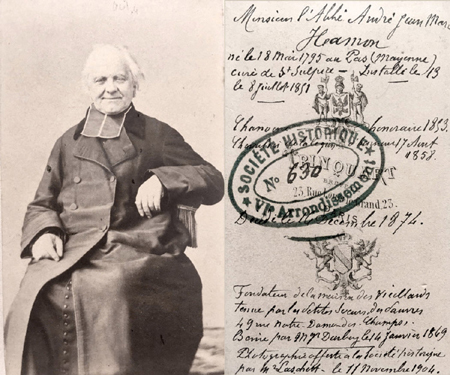 Monsieur l'Abbé André Jean Marie
Hamon
né le 18 Mai 1795 au Pas (Mayenne)
curé de St Sulpice – Installé le 13
le 8 juillet 1851
Chanoine honoraire 1853.
Août
1858.
SOCIÉTÉ HISTORIQUE
TRINQUART
No 630
23, Rue Louis le Grand 23.
VIe Arrondissement
PARIS
Décédé Décembre 1874.
Fondateur de la maison des Vieillards
tenue par les petites Sœurs des Pauvres
49 rue Notre-Dame-des-Champs.
Bénie par Mgr Darboy le 14 janvier 1869
Photographie offerte à la Société historique
par M. le 11 Novembre 1904.